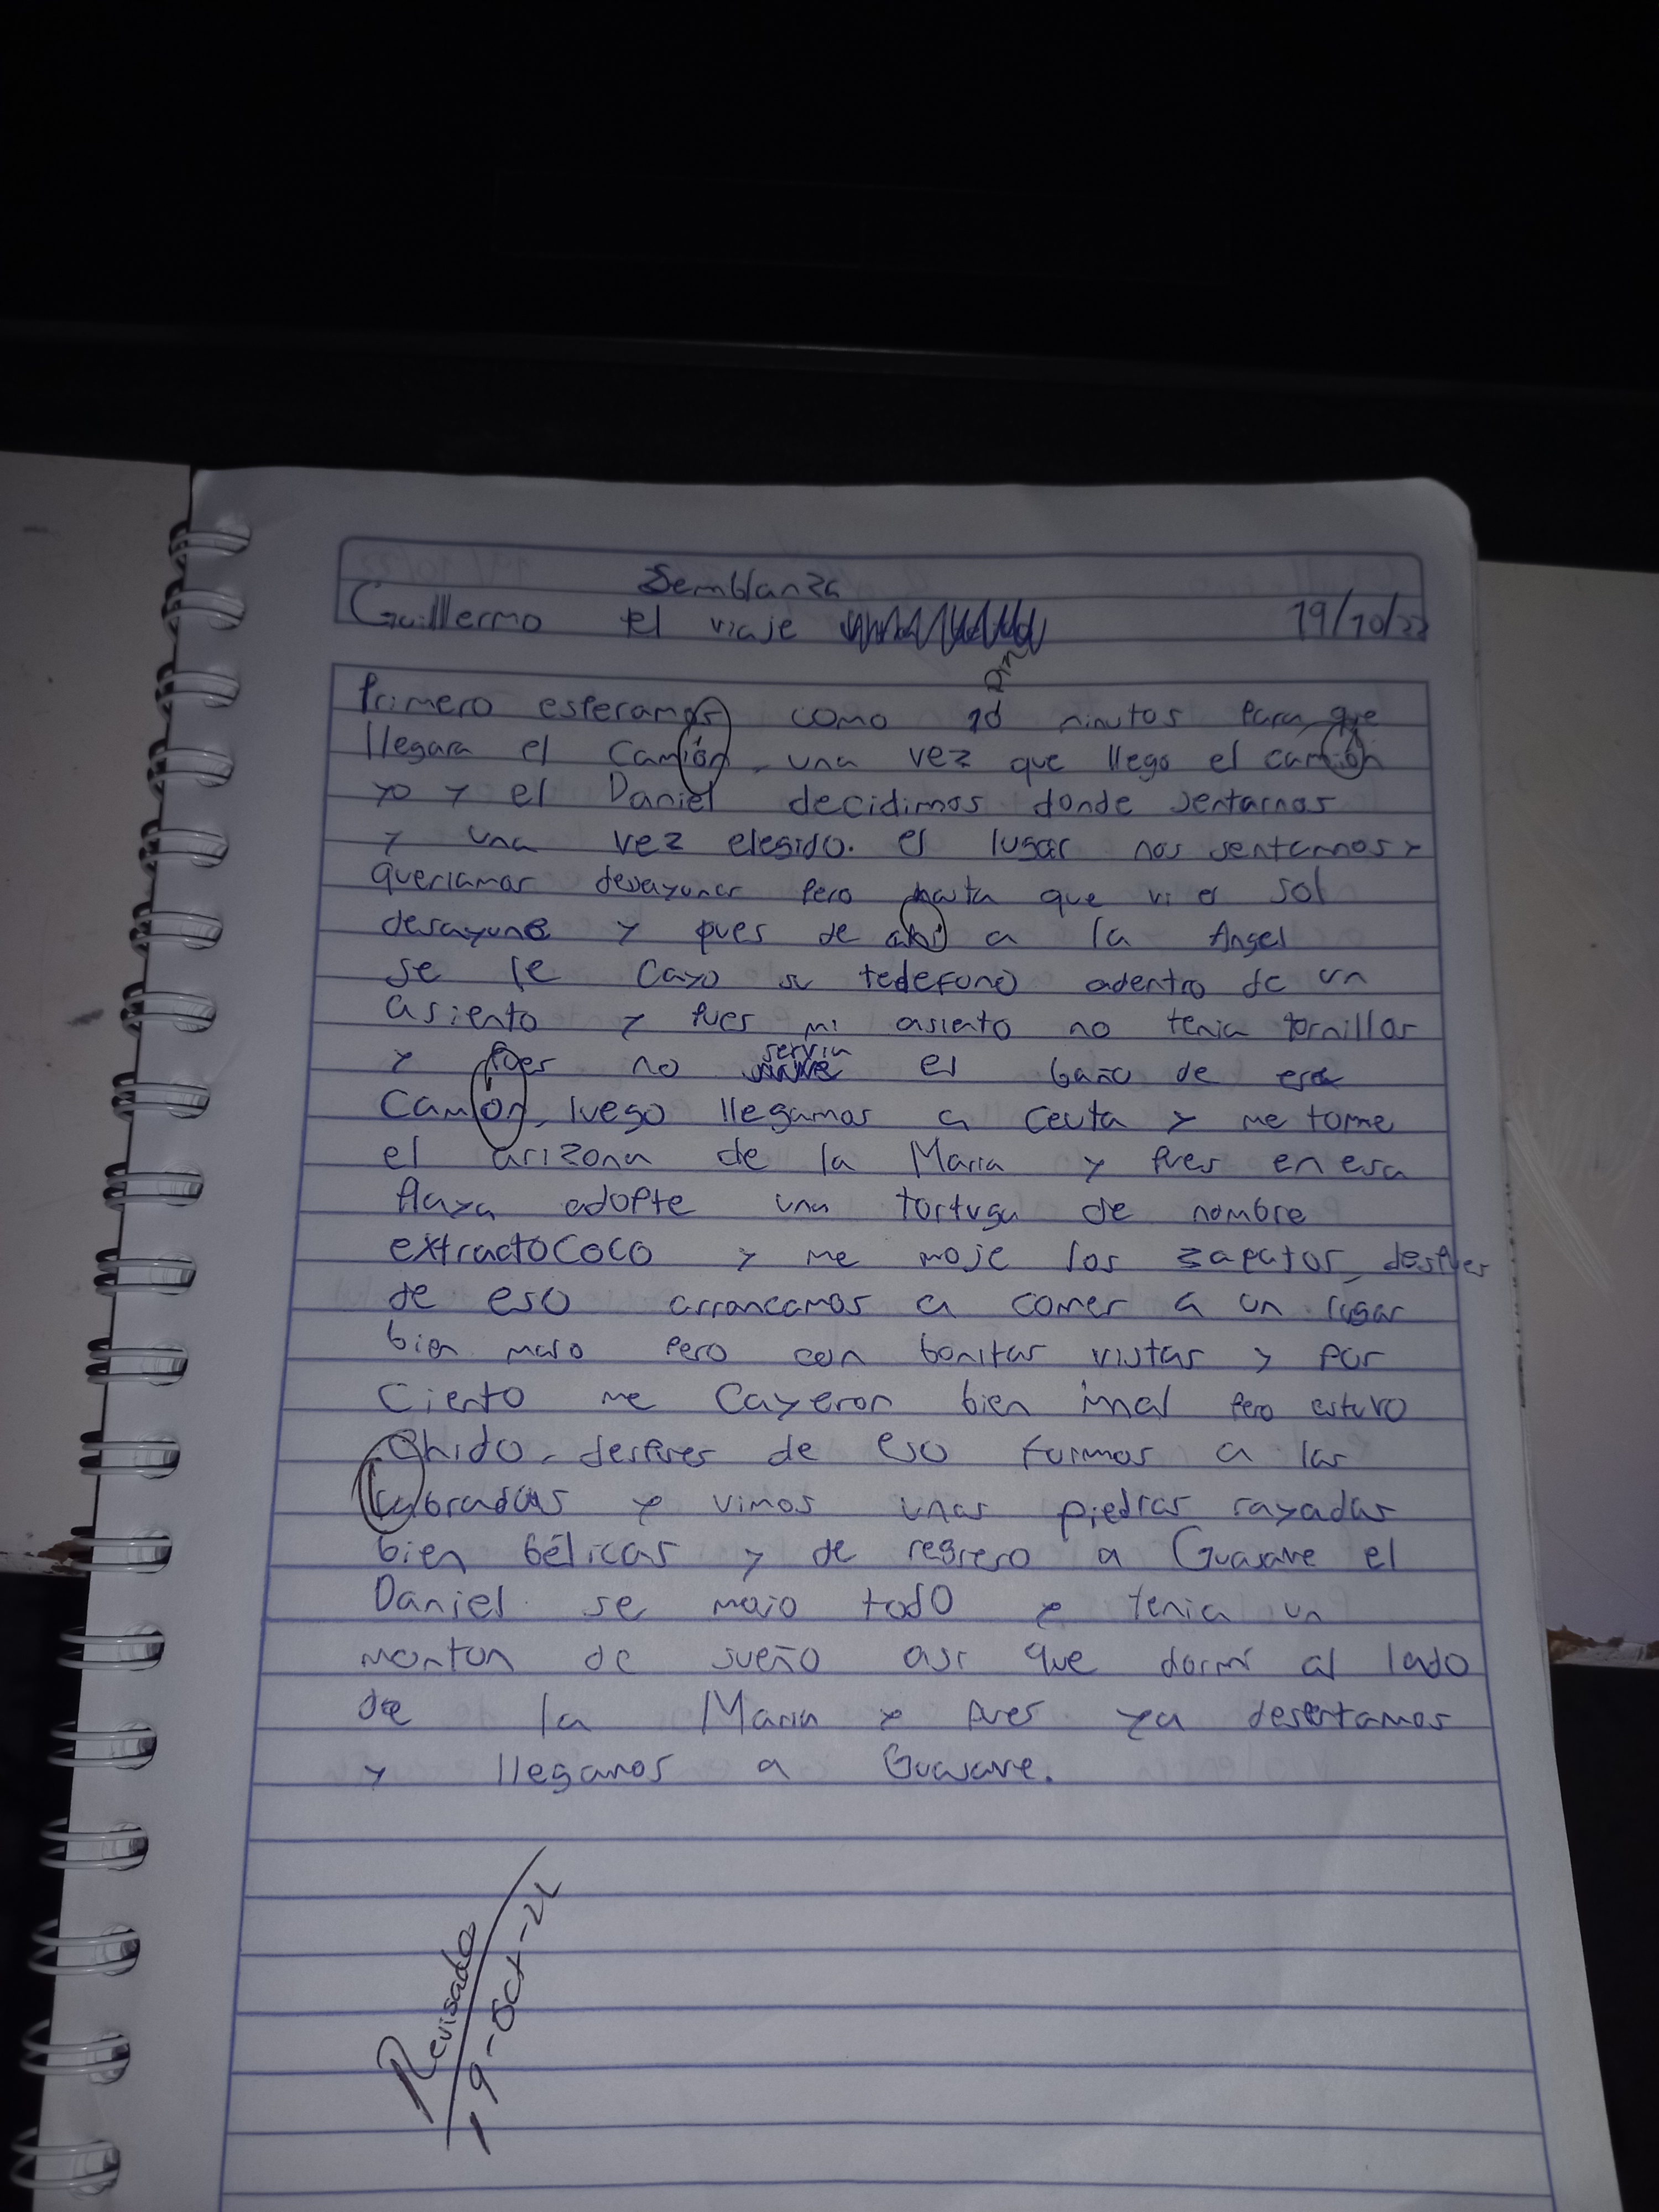 Semblanza
Guillermo el viaje 19/10/22
Primero esperamos como 10 minutos para que
llegara el camión, una vez que llego el camión
yo y el Daniel decidimos donde sentarnos
y una vez elegido. el lugar nos sentamos y
queriamos desayunar pero hasta que vi el sol
desayune y pues de ahí a la Angel
se le cayo su teledefono adentro de un
asiento y pues mi asiento no tenia tornillos
servia
y pues no el baño de ese
Camión, luego llegamos a Ceuta y me tome
el arizona de la Maria y pues en esa
playa adopte una tortuga de nombre
extractococo y me moje los zapatos, despues
de eso arrancamos a comer a un lugar
bien malo pero con bonitas vistas y por
Ciento me Cayeron bien mal pero estuvo
Chido, despues de eso fuimos a las
Labradas y vimos unas piedras rayadas
bien bélicas y de regreso a Guasave el
Daniel se mojo todo y tenia un
monton de sueño asi que dormí al lado
de la Maria y pues ya despertamos
y llegamos a Guasave.
Revisado
19-Oct-22